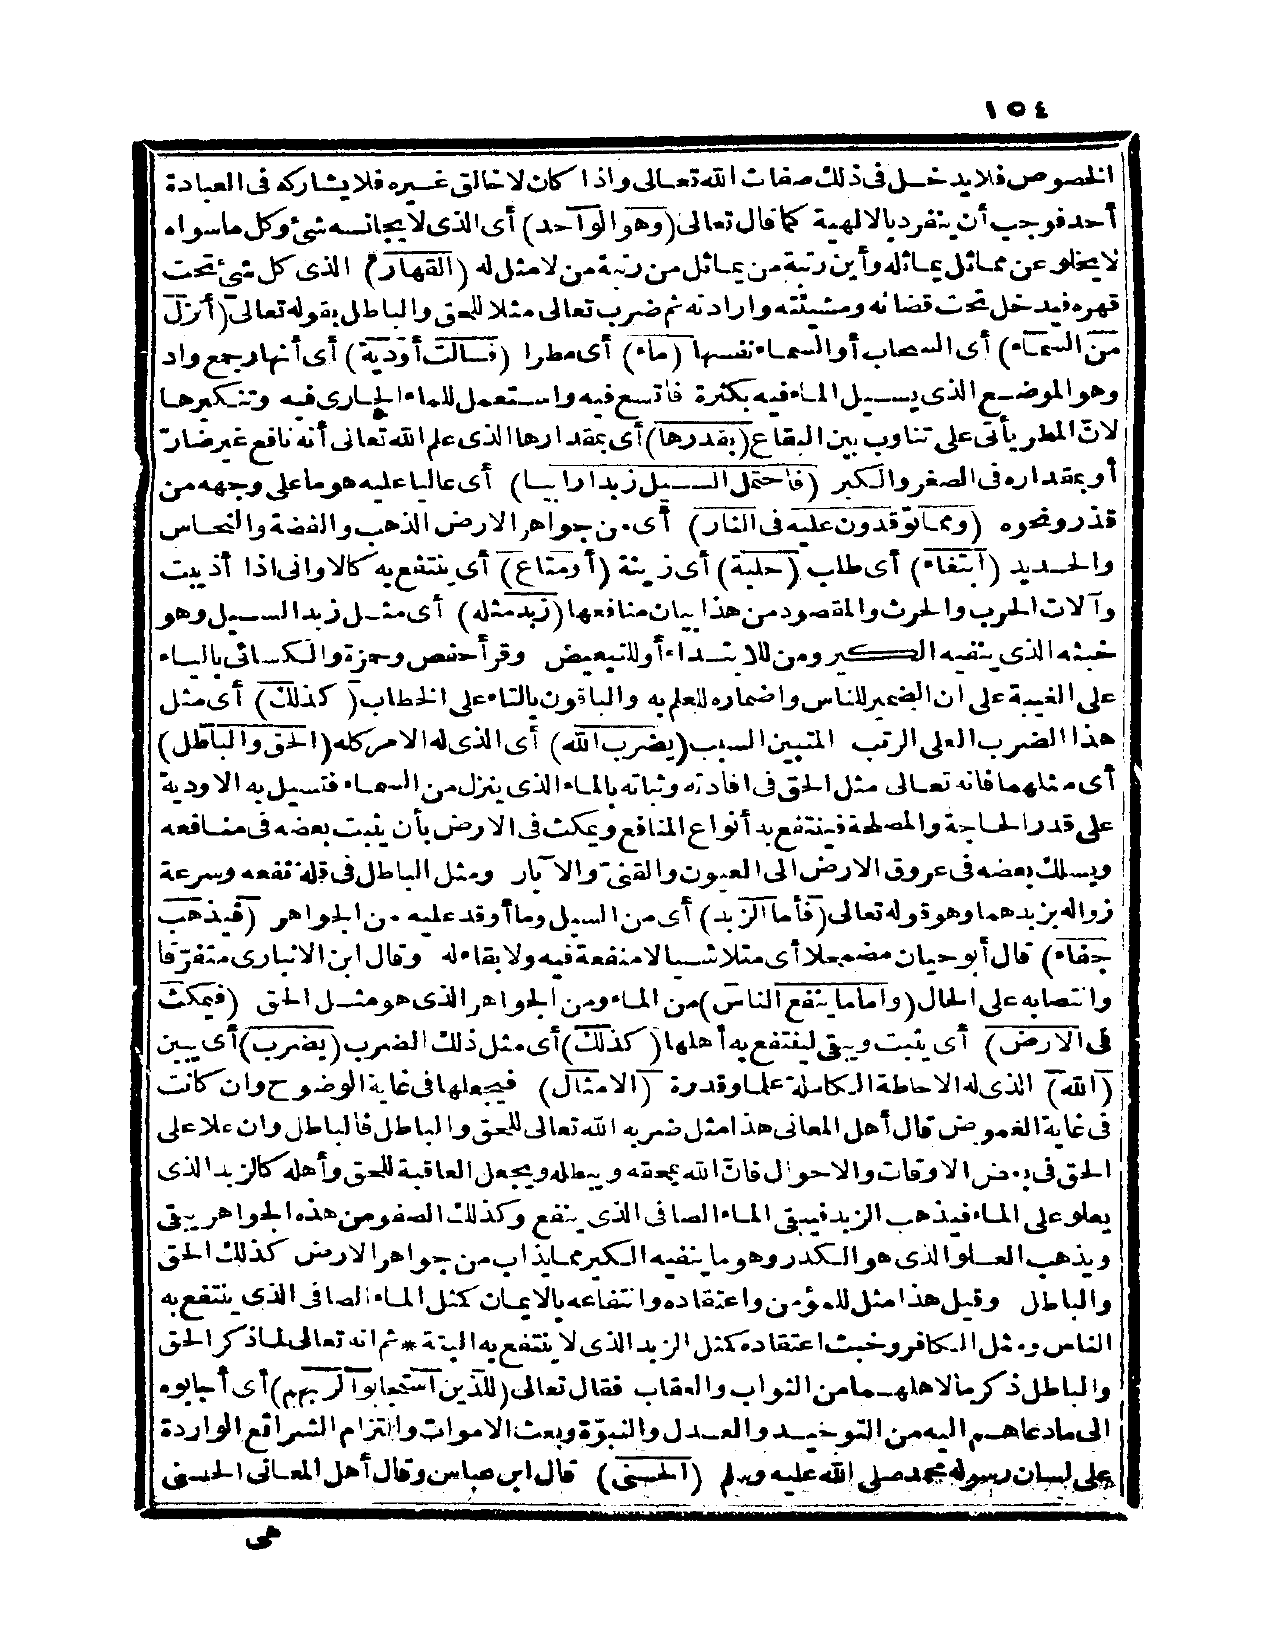 ١٥٤
الخصوص فلا يدخل فى ذلك صفات الله تعالى واذا كان لا خالق غيره فلا يشاركه فى العبادة
أحد فوجب أن ينفرد بالالهية كما قال تعالى (وهو الواحد) أى الذى لا يجانسه شئ وكل ما سواه
لا يخلو عن مماثل يماثله وأين رتبة من يماثل من رتبة من لا مثل له (القهار) الذى كل شئ تحت
قهره فيدخل تحت قضائه ومشيئته وارادته ثم ضرب تعالى مثلا للحق والباطل بقوله تعالى (أنزل
من السماء) أى السحاب أو السماء نفسها (ماء) أى مطرا (فسالت أودية) أى أنهار جمع واد
وهو الموضع الذى يسيل الماء فيه بكثرة فاتسع فيه واستعمل للماء الجارى فيه وتنكيرها
لانّ المطر يأتى على تناوب بين البقاع (بقدرها) أى بمقدارها الذى علم الله تعالى أنه نافع غير ضارّ
أو بمقداره فى الصغر والكبر (فاحتمل السيل زبدا رابيا) أى عاليا عليه هو ما على وجهه من
قذر ونحوه (ومما توقدون عليه فى النار) أى من جواهر الارض الذهب والفضة والنحاس
والحديد (ابتغاء) أى طلب (حلية) أى زينة (أو متاع) أى ينتفع به كالاوانى اذا أذيبت
وآلات الحرب والحرث والمقصود من هذا بيان منافعها (زبد مثله) أى مثل زبد السيل وهو
خبثه الذى ينفيه الكير ومن للابتداء أو للتبعيض وقرأ حفص وحمزة والكسائى بالياء
على الغيبة على ان الضمير للناس واضماره للعلم به والباقون بالتاء على الخطاب (كذلك) أى مثل
هذا الضرب العلى الرتب المتبين السبب (يضرب الله) أى الذى له الامر كله (الحق والباطل)
أى مثلهما فانه تعالى مثل الحق فى افادته وثباته بالماء الذى ينزل من السماء فتسيل به الاودية
على قدر الحاجة والمصلحة فينتفع به أنواع المنافع ويمكث فى الارض بأن يثبت بعضه فى منافعه
ويسلك بعضه فى عروق الارض الى العيون والقنىّ والآبار ومثل الباطل فى قلة نفعه وسرعة
زواله بزبدهما وهو قوله تعالى (فأما الزبد) أى من السيل وما أوقد عليه من الجواهر (فيذهب
جفاء) قال أبو حيان مضمحلا أى متلاشيا لا منفعة فيه ولا بقاء له وقال ابن الانبارى متفرّقا
وانتصابه على الحال (وأما ما ينفع الناس) من الماء ومن الجواهر الذى هو مثل الحق (فيمكث
فى الارض) أى يثبت ويبقى لينتفع به أهلها (كذلك) أى مثل ذلك الضرب (يضرب) أى يبين
(الله) الذى له الاحاطة الكاملة علما وقدرة (الامثال) فيجعلها فى غاية الوضوح وان كانت
فى غاية الغموض قال أهل المعانى هذا مثل ضربه الله تعالى للحق والباطل فالباطل وان علا على
الحق فى بعض الاوقات والاحوال فانّ الله يمحقه ويبطله ويجعل العاقبة للحق وأهله كالزبد الذى
يعلو على الماء فيذهب الزبد فيبقى الماء الصافى الذى ينفع وكذلك الصفو من هذه الجواهر يبقى
ويذهب العلو الذى هو الكدر وهو ما ينفيه الكير مما يذاب من جواهر الارض كذلك الحق
والباطل وقيل هذا مثل للمؤمن واعتقاده وانتفاعه بالايمان كمثل الماء الصافى الذى ينتفع به
الناس ومثل الكافر وخبث اعتقاده كمثل الزبد الذى لا ينتفع به البتة * ثم انه تعالى لما ذكر الحق
والباطل ذكر ما لاهلهما من الثواب والعقاب فقال تعالى (للذين استجابوا لربهم) أى أجابوه
الى ما دعاهم اليه من التوحيد والعدل والنبوّة وبعث الاموات والتزام الشرائع الواردة
على لسان رسوله محمد صلى الله عليه وسلم (الحسنى) قال ابن عباس وقال أهل المعانى الحسنى
هى